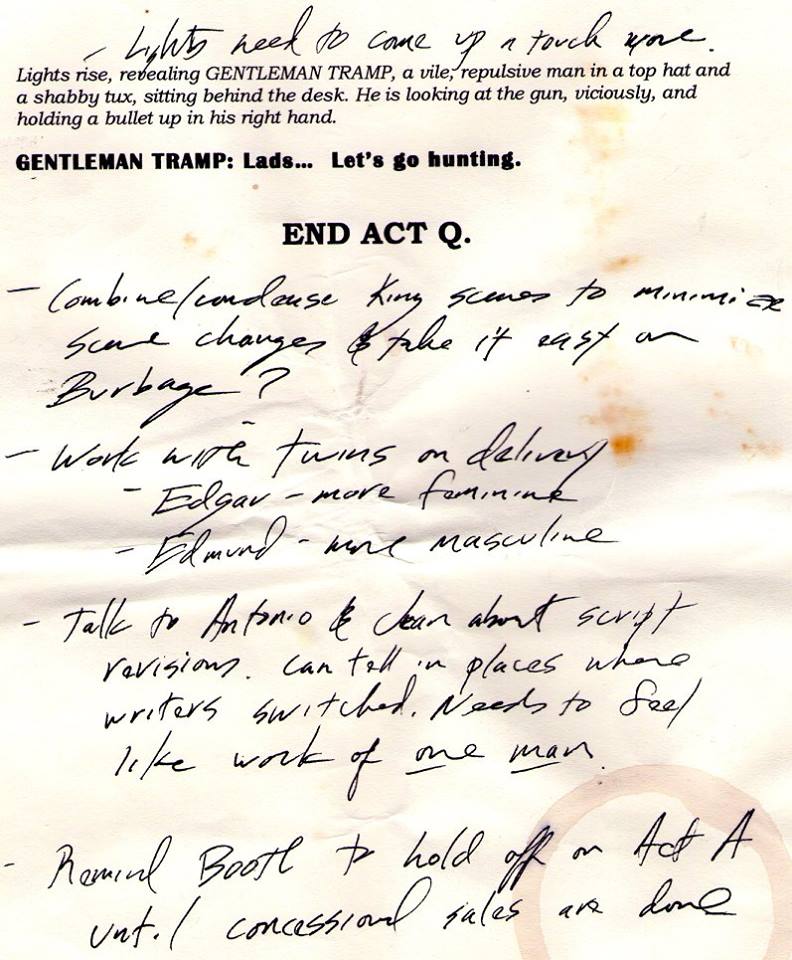 - Lights need to come up a touch more.
Lights rise, revealing GENTLEMAN TRAMP, a vile, repulsive man in a top hat and
a shabby tux, sitting behind the desk. He is looking at the gun, viciously, and
holding a bullet up in his right hand.
GENTLEMAN TRAMP: Lads... Let's go hunting.
END ACT Q.
- Combine/condense King scenes to minimize
scene changes & take it easy on
Burbage?
- Work with twins on delivery
- Edgar - more feminine
- Edmund - more masculine
- Talk to Antonio & about script
revisions. Can tell in places where
writers switched. Needs to feel
like work of one man.
- Remind Booth to hold off on Act A
until concessional sales are done